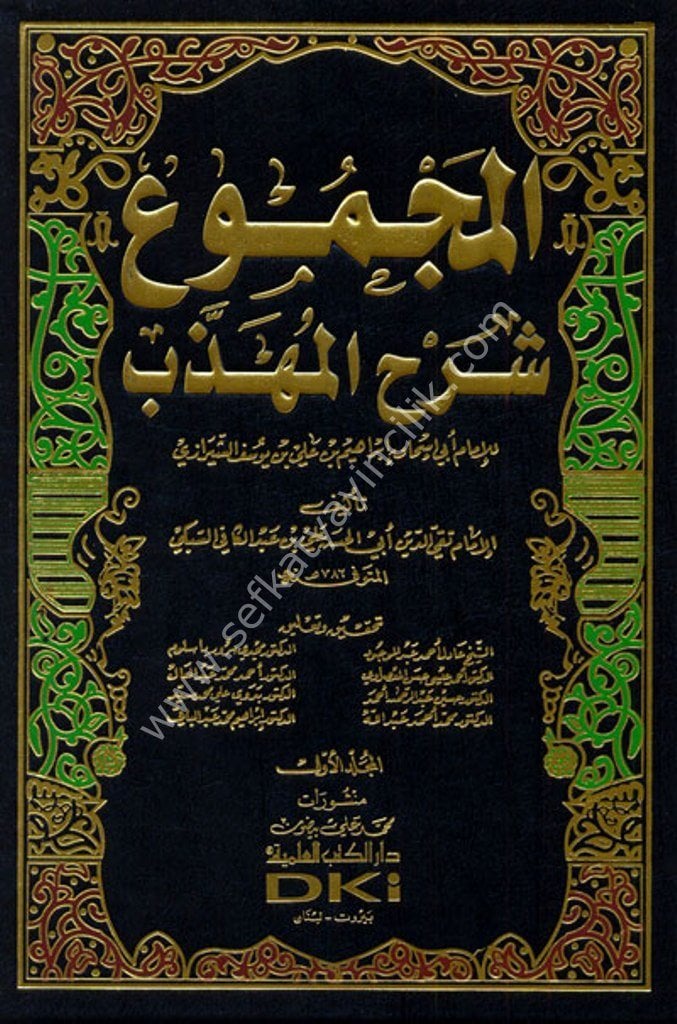 المَجْمُوع
شَرْح المُهَذَّب
للإمام أبي اسحاق إبراهيم بن علي بن يوسف الشيرازي
تأليف
الإمام تقي الدين أبي الحسن علي بن عبد الكافي السبكي
المتوفى ٧٨٢ هـ
تحقيق وتعليق
الشيخ عادل أحمد عبد الموجود
الدكتور أحمد عيسى حسن المعصراوي
الدكتور أحمد محمد عبد العال
الدكتور حسين عبد الرحمن أحمد
الدكتور بدوي علي محمد
الدكتور محمد أحمد عبد الله
الدكتور إبراهيم محمد عبد الباقي
المجلد الأول
منشورات
محمد علي بيضون
دار الكتب العلمية
DKi
بيروت - لبنان
www.sefkatyayincilik.com